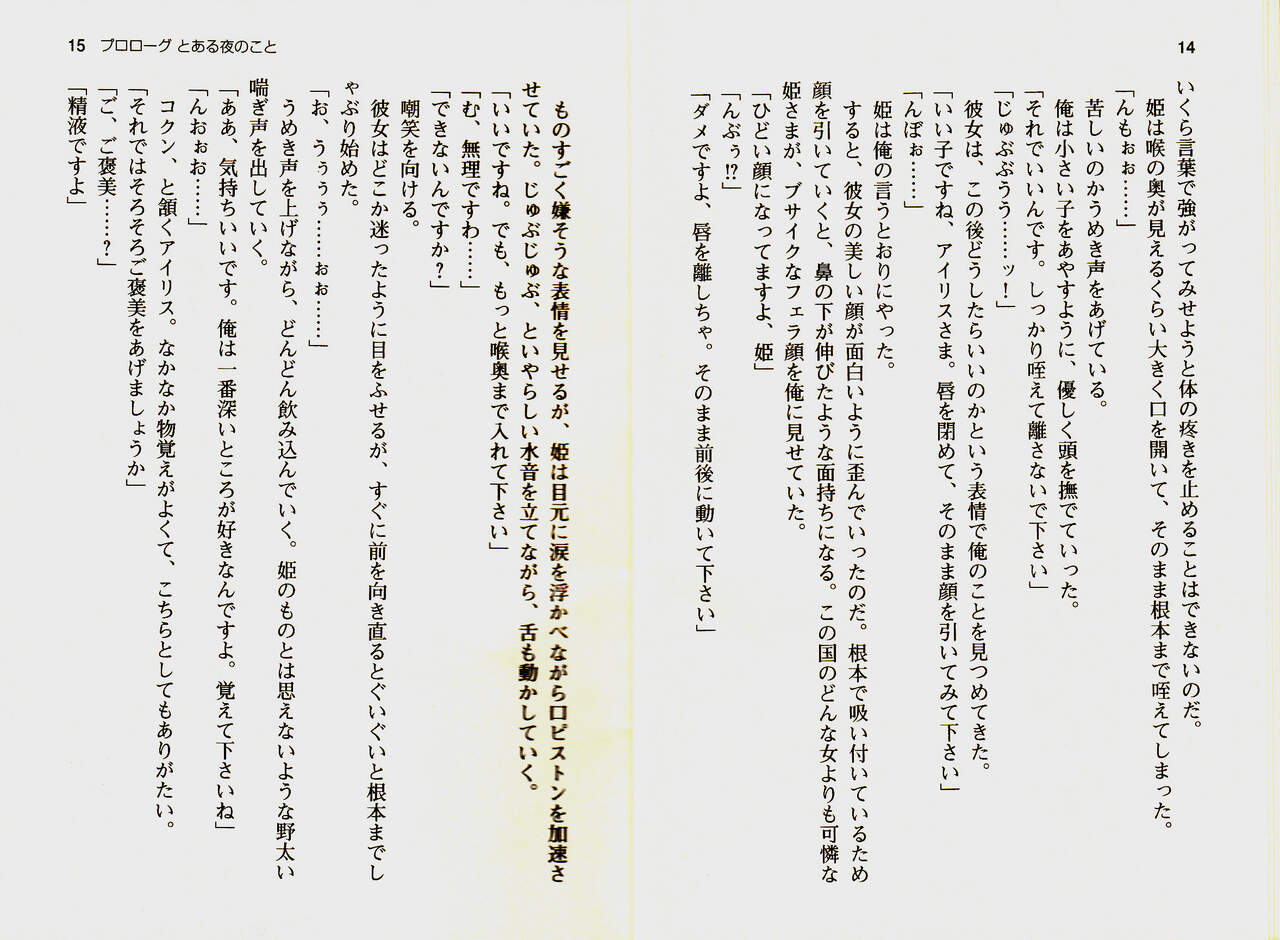 14
いくら言葉で強がってみせようと体の疼きを止めることはできないのだ。
姫は喉の奥が見えるくらい大きく口を開いて、そのまま根本まで咥えてしまった。
「んもぉぉ……」
苦しいのかうめき声をあげている。
俺は小さい子をあやすように、優しく頭を撫でていった。
「それでいいんです。しっかり咥えて離さないで下さい」
「じゅぶぶうう……ッ！」
彼女は、この後どうしたらいいのかという表情で俺のことを見つめてきた。
「いい子ですね、アイリスさま。唇を閉めて、そのまま顔を引いてみて下さい」
「んぽぉ……」
姫は俺の言うとおりにやった。
すると、彼女の美しい顔が面白いように歪んでいったのだ。根本で吸い付いているため
顔を引いていくと、鼻の下が伸びたような面持ちになる。この国のどんな女よりも可憐な
姫さまが、ブサイクなフェラ顔を俺に見せていた。
「ひどい顔になってますよ、姫」
「んぶぅ⁉」
「ダメですよ、唇を離しちゃ。そのまま前後に動いて下さい」
15 プロローグ とある夜のこと
ものすごく嫌そうな表情を見せるが、姫は目元に涙を浮かべながら口ピストンを加速さ
せていた。じゅぶじゅぶ、といやらしい水音を立てながら、舌も動かしていく。
「いいですね。でも、もっと喉奥まで入れて下さい」
「む、無理ですわ……」
「できないんですか？」
嘲笑を向ける。
彼女はどこか迷ったように目をふせるが、すぐに前を向き直るとぐいぐいと根本までし
ゃぶり始めた。
「お、うぅぅぅ……ぉぉ……」
うめき声を上げながら、どんどん飲み込んでいく。姫のものとは思えないような野太い
喘ぎ声を出していく。
「ああ、気持ちいいです。俺は一番深いところが好きなんですよ。覚えて下さいね」
「んおぉぉ……」
コクン、と頷くアイリス。なかなか物覚えがよくて、こちらとしてもありがたい。
「それではそろそろご褒美をあげましょうか」
「ご、ご褒美……？」
「精液ですよ」